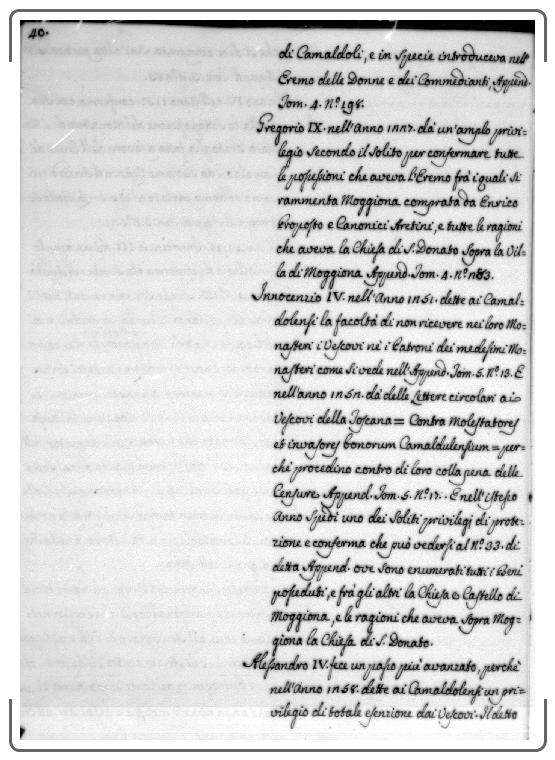 40.
di Camaldoli, e in Specie introduceva nell'
Eremo delle Donne e dei Commedianti, Append.
Tom. 4. N.º 198.
Gregorio IX. nell'Anno 1227. dà un'amplo privi=
legio Secondo il Solito per confermare tutte
le possessioni che aveva l'Eremo frà i quali Si
rammenta Moggiona comprata da Enrico
Proposto e Canonici Aretini, e tutte le ragioni
che aveva la Chiesa di S. Donato Sopra la Vil=
la di Moggiona Append. Tom. 4. N.º 283.
Innocenzio IV. nell'Anno 1251. dette ai Camal=
dolensi la facoltà di non ricevere nei loro Mo=
nasteri i Vescovi nè i Patroni dei medesimi Mo=
nasteri come Si vede nell'Append. Tom. 5. N.º 13. E
nell'anno 1252. dà delle Lettere circolari ai
Vescovi della Toscana = Contra Molestatores
et invasores bonorum Camaldulensium = per=
chè procedino contro di loro colla pena delle
Censure Append. Tom. 5. N.º 17. E nell'istesso
Anno Spedì uno dei Soliti privilegj di prote=
zione e conferma che può vedersi al N.º 33. di
detta Append. ove Sono enumerati tutti i Beni
posseduti, e frà gli altri la Chiesa e Castello di
Moggiona, e le ragioni che aveva Sopra Mog=
giona la Chiesa di S. Donato.
Alessandro IV. fece un passo più avanzato, perchè
nell'Anno 1258. dette ai Camaldolensi un pri=
vilegio di totale esenzione dai Vescovi. Il detto